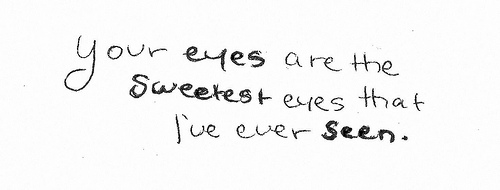 your eyes are the
sweetest eyes that
I've ever seen.